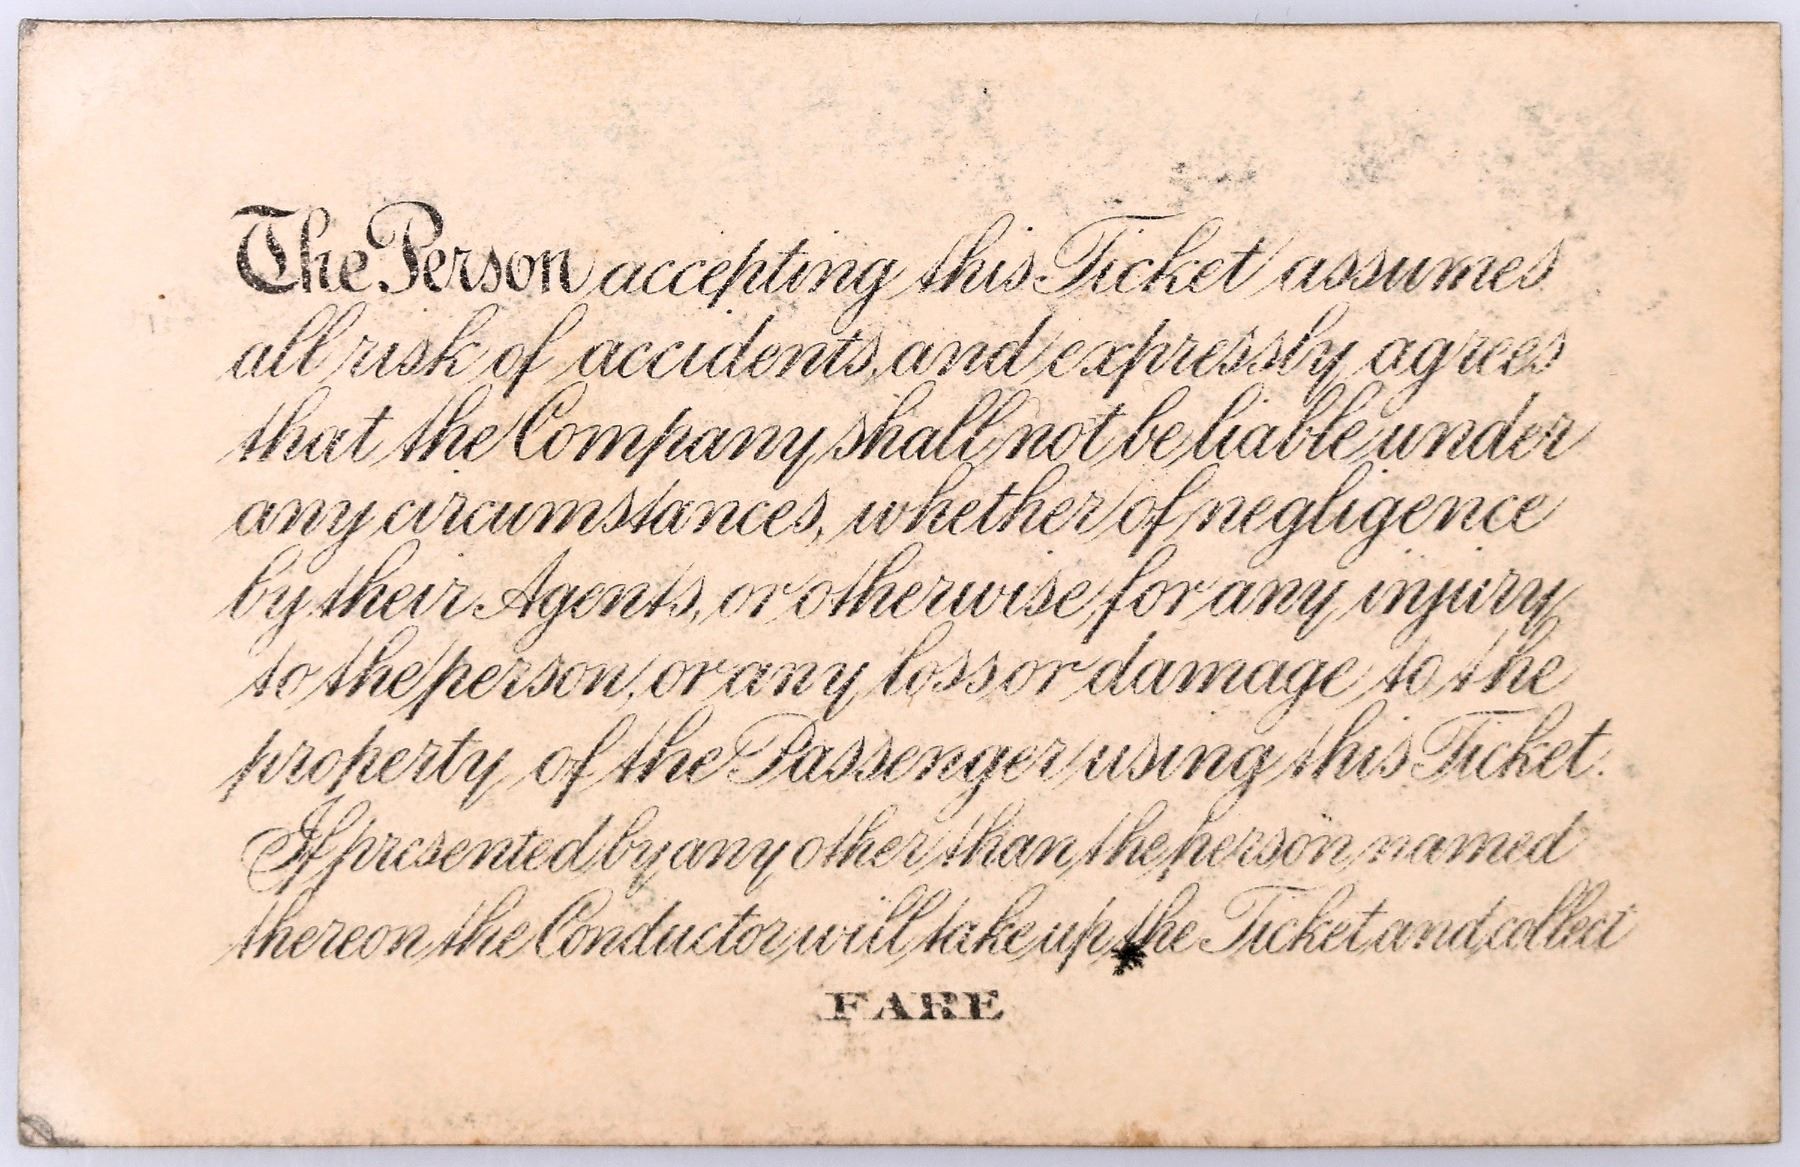 The Person accepting this Ticket assumes
all risk of accidents, and expressly agrees
that the Company shall not be liable under
any circumstances, whether of negligence
by their Agents, or otherwise, for any injury
to the person, or any loss or damage to the
property of the Passenger using this Ticket.
If presented by any other than the person named
thereon the Conductor will take up the Ticket and collect
FARE